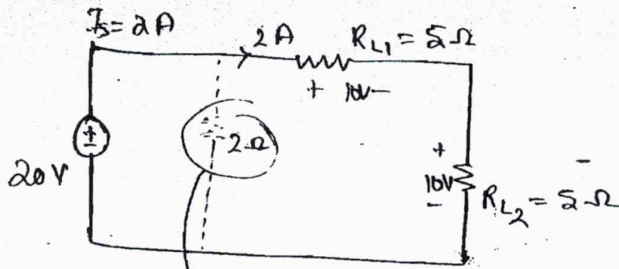 Is = 2A
2A
RL1 = 5Ω
+ 10V -
+
20V
2Ω
+
10V
-
RL2 = 5Ω